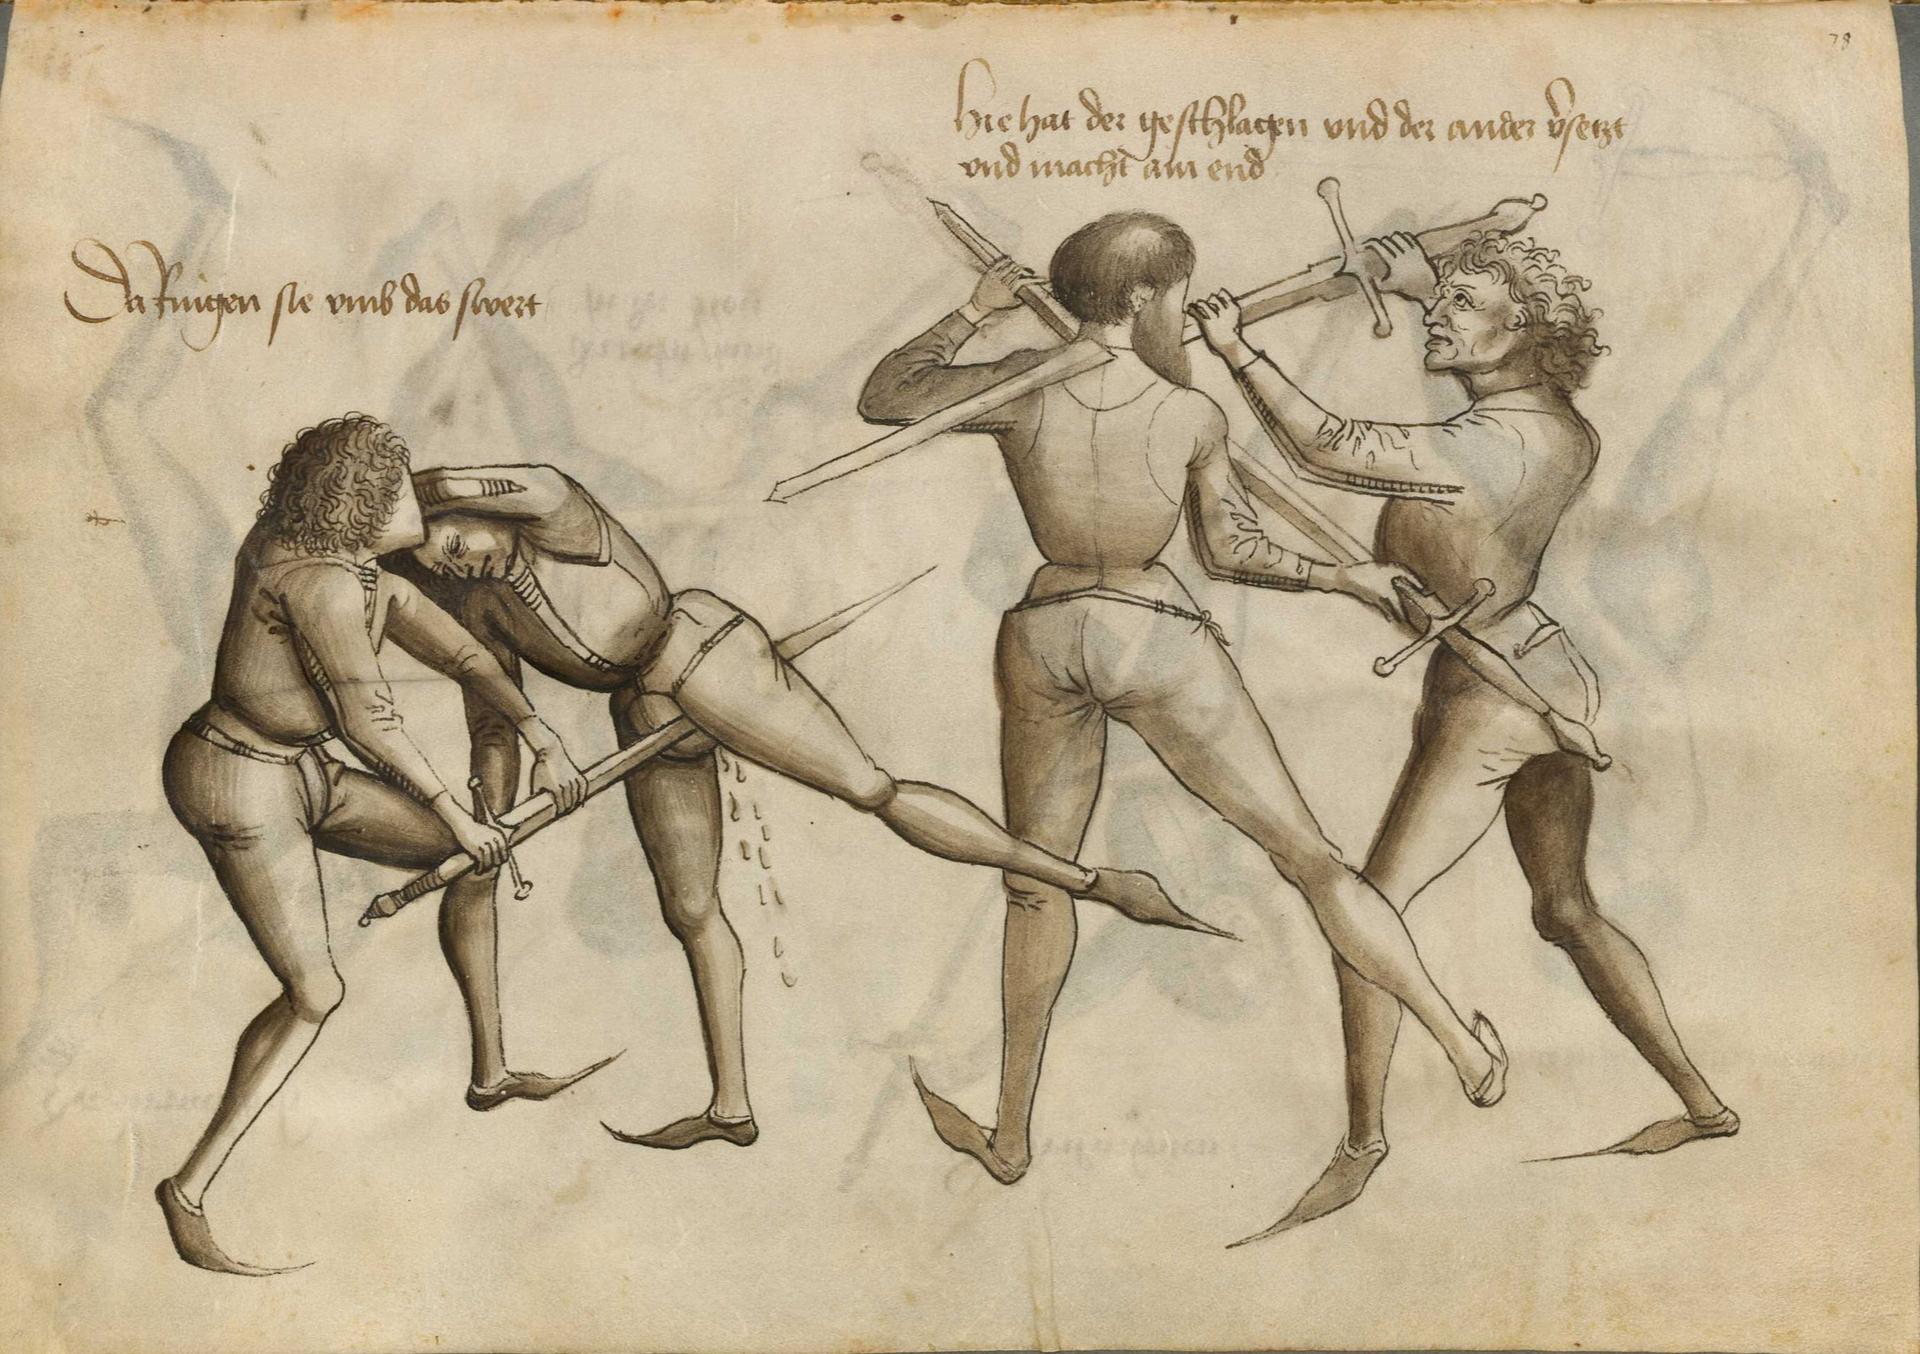 78
Hie hat der geschlagen vnd der ander v̉setzt
vnd macht am end
Da Ringen sie vmb das swert